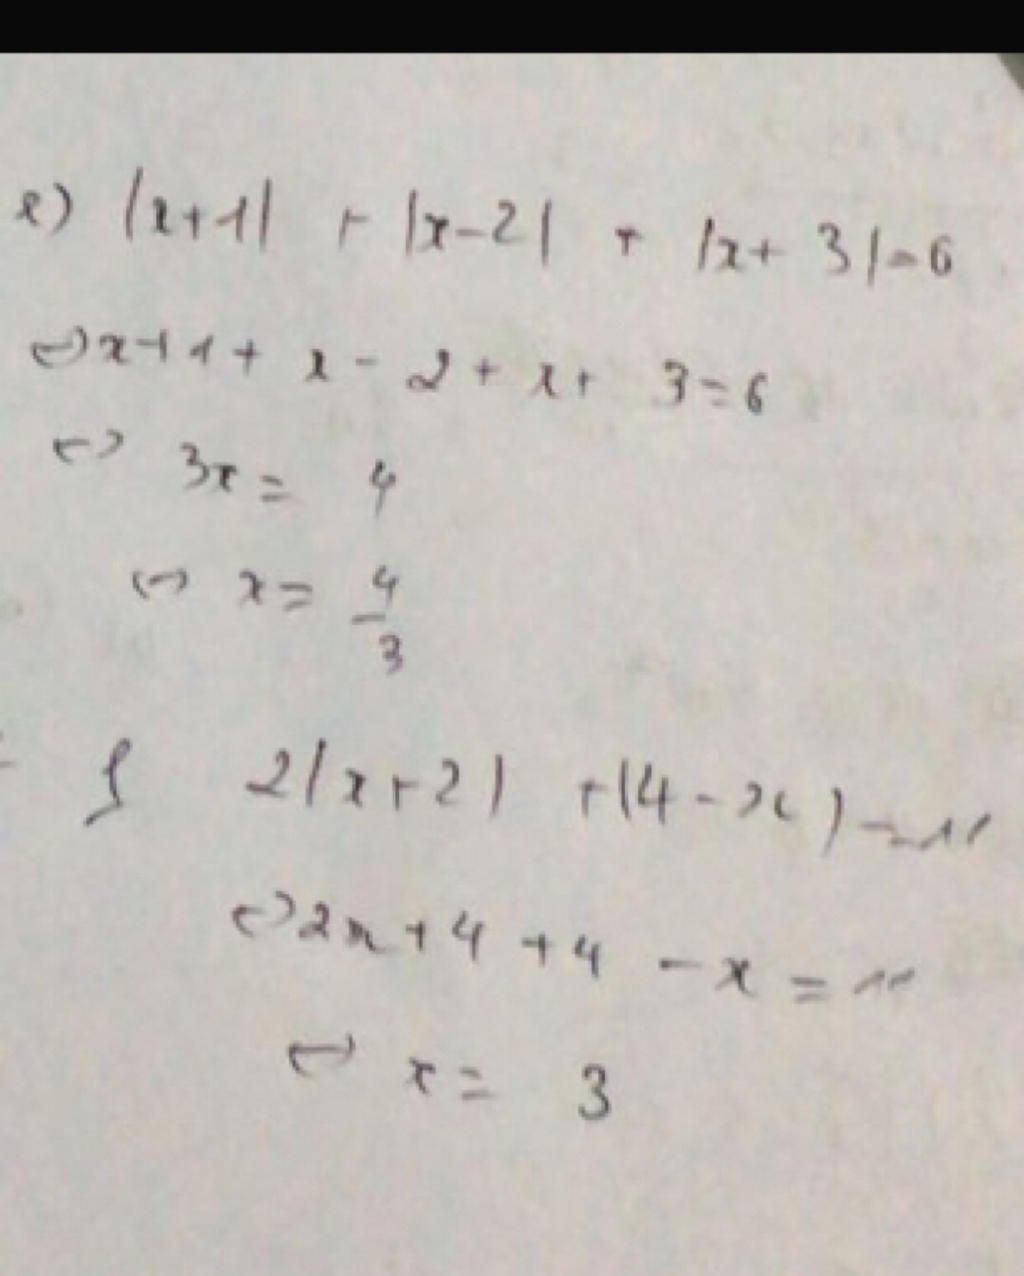 e) |x+1| + |x-2| + |x+ 3|=6
⇔x+1+ x - 2 + x+ 3=6
⇔ 3x = 4
⇔ x= 4/3
f 2|x+2| +|4-x|=11
⇔2x+4 +4 -x = 11
⇔ x= 3